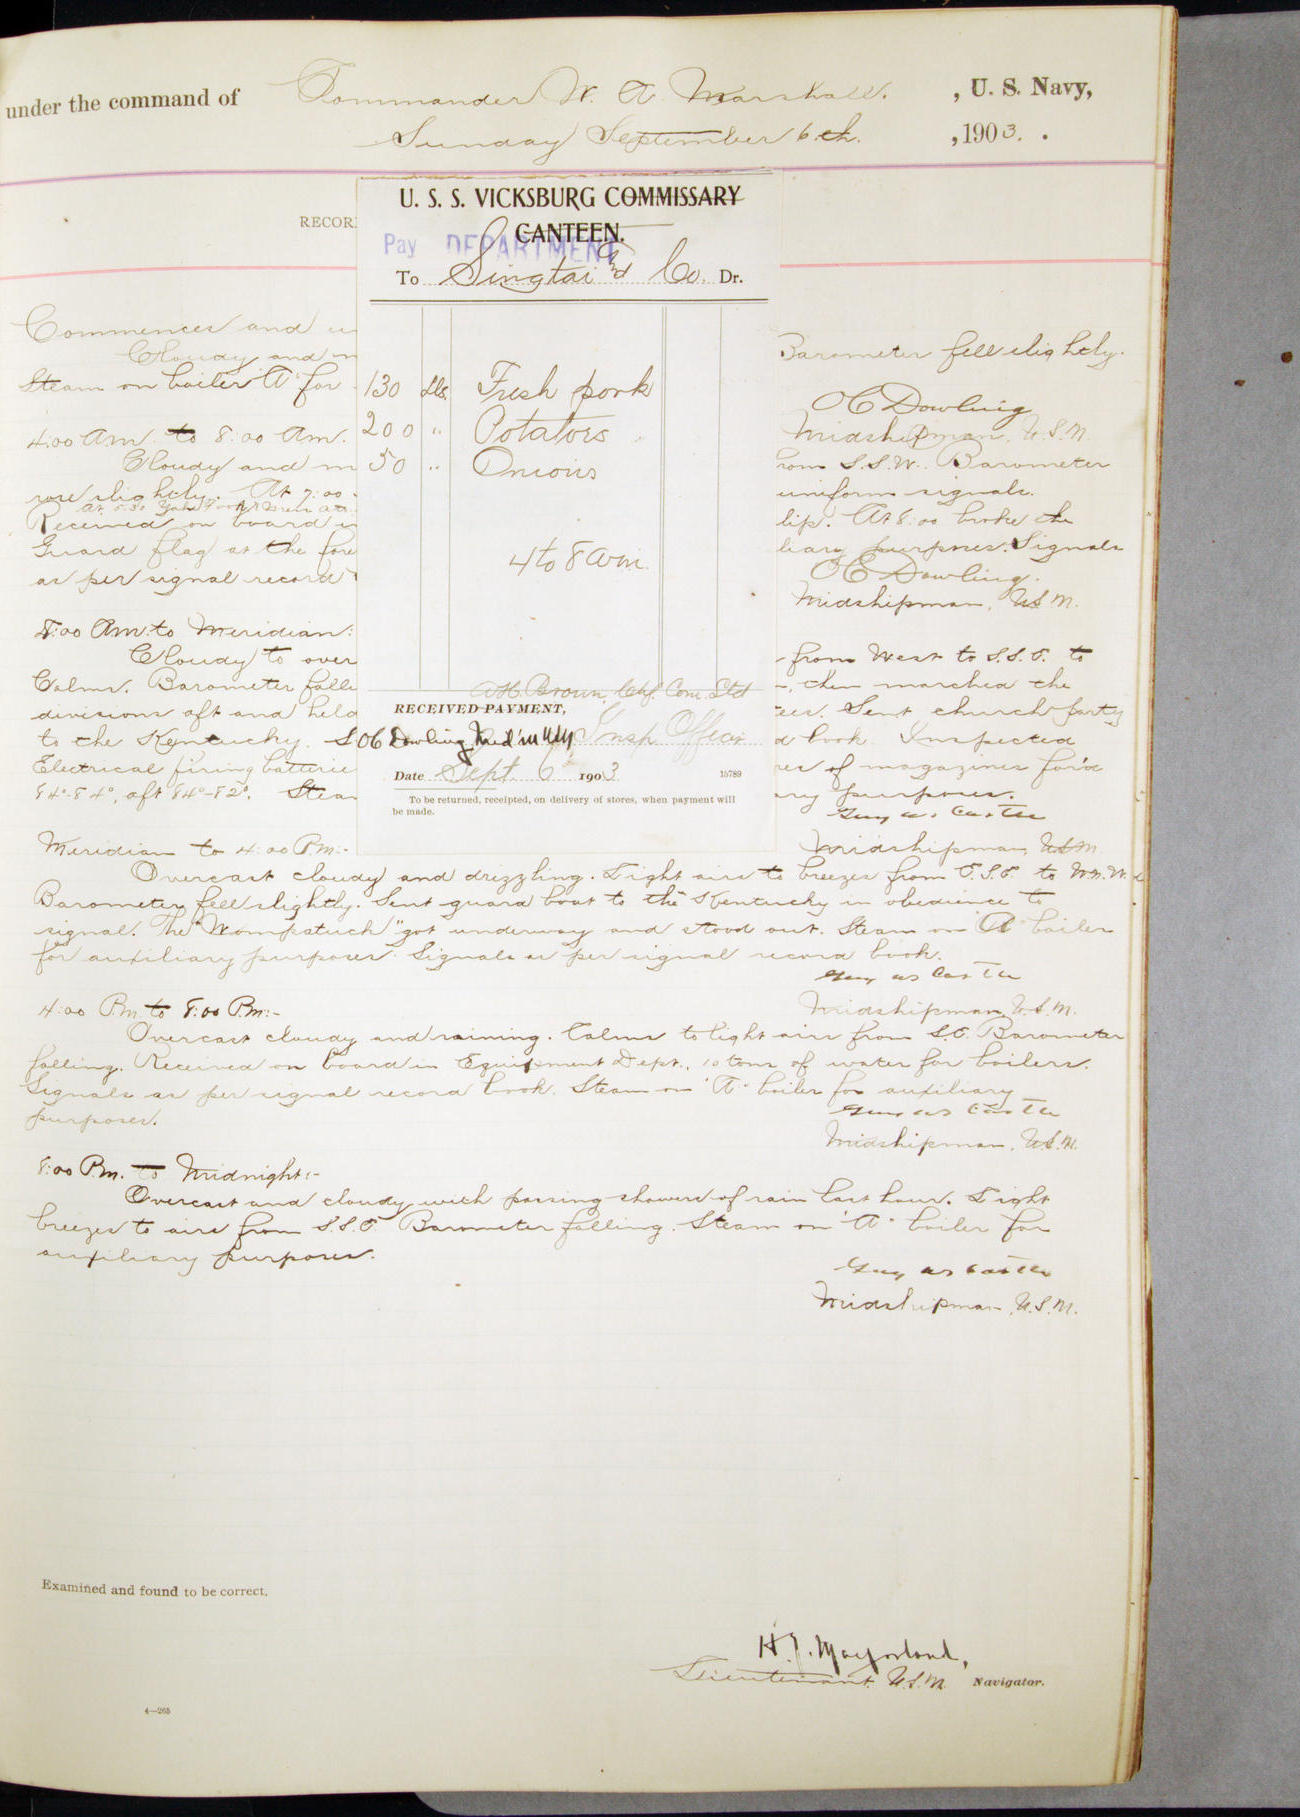 under the command of Commander W. A. Marshall. , U. S. Navy,
Sunday September 6th. , 1903.
RECOR
U. S. S. VICKSBURG COMMISSARY
CANTEEN.
Pay DEPARTMENT
To Singtai and Co. Dr.
130 lbs. Fresh pork
200 " Potatoes
50 " Onions
4 to 8 am.
RECEIVED PAYMENT,
Insp. Officer
Date Sept. 6 1903
15789
To be returned, receipted, on delivery of stores, when payment will
be made.
Commences and
Cloudy and
Barometer fell slightly.
Steam on boiler "A" for
O C Dowling
Midshipman, U.S.N.
4:00 Am. to 8:00 Am.
Cloudy and
from S.S.W. Barometer
rose slightly. At 7:00
uniform signals.
Received on board in
At 8:00 broke the
Guard flag at the fore
purposes. Signals
as per signal record
O C Dowling.
Midshipman, U.S.N.
8:00 Am. to Meridian:
Cloudy to over
from West to S.S.E. to
Calms. Barometer
then marched the
divisions aft and held
Sent church party
to the Kentucky. S
book. Inspected
Electrical firing batterie
of magazines for'd
84°-84°, aft 84°-82°. Stea
purposes.
Midshipman U.S.N.
Meridian to 4:00 P.M:-
Overcast cloudy and drizzling. Light airs to breezes from E.S.E. to W.N.W.
Barometer fell slightly. Sent guard boat to the Kentucky in obedience to
signal. The "Wompatuck" got underway and stood out. Steam on "A" boiler
for auxiliary purposes. Signals as per signal record book.
Midshipman, U.S.N.
4:00 P.M. to 8:00 P.M:-
Overcast cloudy and raining. Calms to light airs from S.E. Barometer
falling. Received on board in Equipment Dept., 10 tons of water for boilers.
Signals as per signal record book. Steam on "A" boiler for auxiliary
purposes.
Midshipman, U.S.N.
8:00 P.m. to Midnight:-
Overcast and cloudy with passing showers of rain last hour. Light
breezes to airs from S.S.E. Barometer falling. Steam on "A" boiler for
auxiliary purposes.
Midshipman, U.S.N.
Examined and found to be correct.
Lieutenant. U.S.N. Navigator.
4—265